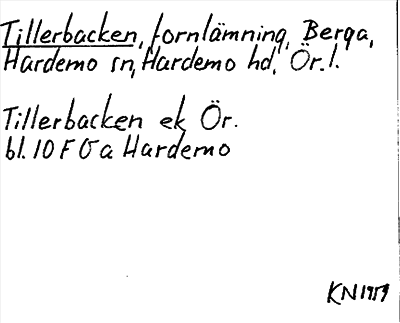 Tillerbacken, fornlämning, Berga,
Hardemo sn, Hardemo hd, Ör. l.
Tillerbacken ek Ör.
bl. 10 F 0 a Hardemo
KN 1959